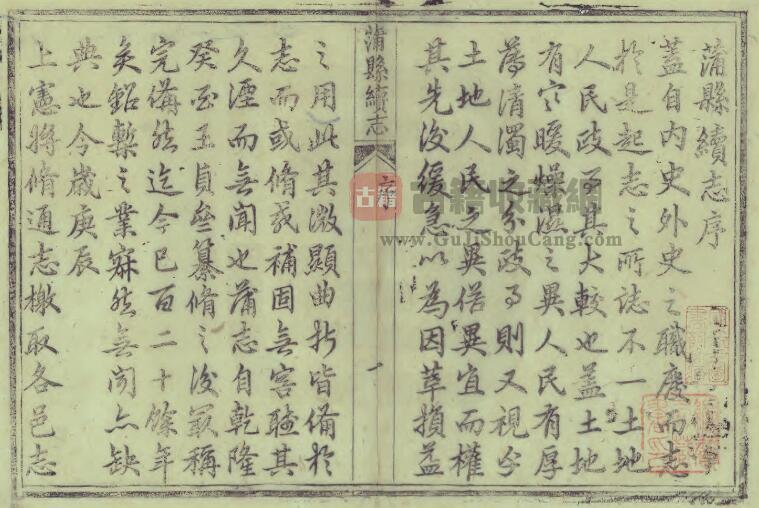 蒲縣續志序
蓋自内史外史之職廢而志
於是起志之所誌不一土地
人民政事其大較也蓋土地
有寒暖燥濕之異人民有厚
薄清濁之分政事則又視乎
土地人民之異俗異宜而權
其先後緩急以為因革損益
蒲縣續志
序
一
之用此其微顯曲折皆備於
志而或脩或補固無容聽其
久湮而無聞也蒲志自乾隆
癸酉王貞參纂脩之後最稱
完備然迄今已百二十餘年
矣鉛槧之業寂然無聞亦缺
典也今歲庚辰
上憲將脩通志檄取各邑志
古籍
古籍收藏網
www.GuJiShouCang.com